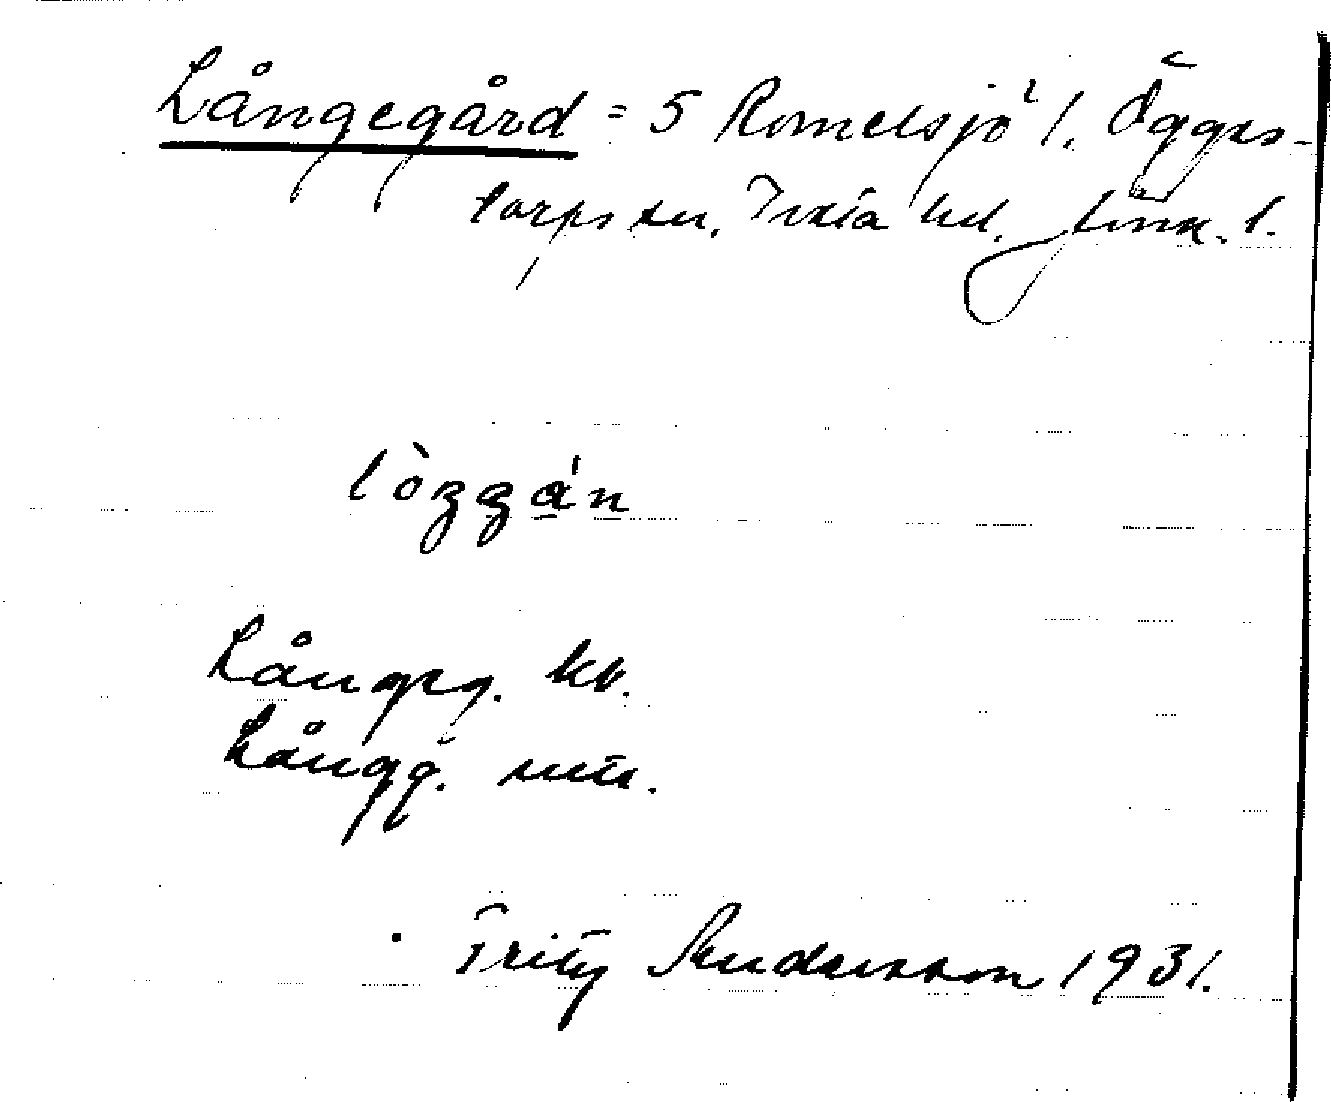 Långegård = 5 Romelsjö 1. Ögges-
torps sn. Tveta hd. Jönk. l.
lòggán
Långeg. kb.
Långg. mtu.
Fritz Andersson 1931.